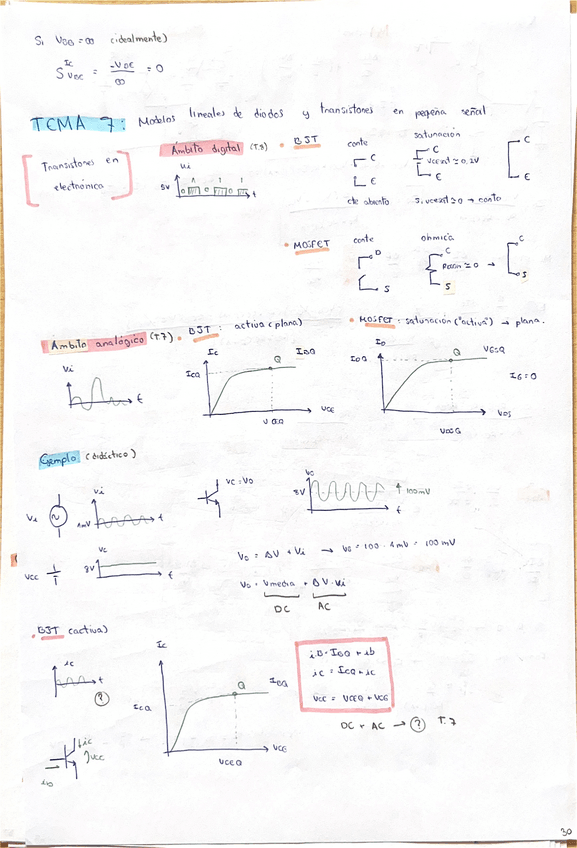 Si VDD = ∞ (idealmente)
S Ic VDC = -VDC / ∞ = 0
TEMA 7: Modelos lineales de diodos y transistores en pequeña señal
[Transistores en electrónica]
Ámbito digital (T.8)
Vi
5V
0 1 0 1 0
t
• BJT
corte
C
E
cto abierto
saturación
C
VCEsat ≃ 0,2V
E
Si VCEsat ≃ 0 → corto
C
E
• MOSFET
corte
D
S
óhmica
C
≃ 0 →
S
C
S
Ámbito analógico (T.7)
Vi
t
• BJT: activa (plana)
IC
ICQ
Q
IBQ
VCE
• MOSFET: saturación ("activa") → plana.
ID
IDQ
Q
VGSQ
VDS
VDSQ
IG = 0
Ejemplo (didáctico)
Vi
1mV
t
VC = VO
VC
8V
100mV
t
VCC
VC
8V
t
VO = ΔV + Vi → VO = 100 · 1mV = 100 mV
VO = Vmedia + ΔV · Vi
DC AC
• BJT (activa)
ic
t
?
IC
ICQ
Q
IBQ
VCE
VCEQ
iB = IBQ + ib
iC = ICQ + ic
VCE = VCEQ + VCE
DC + AC → ? T.7
ic
VCE
30